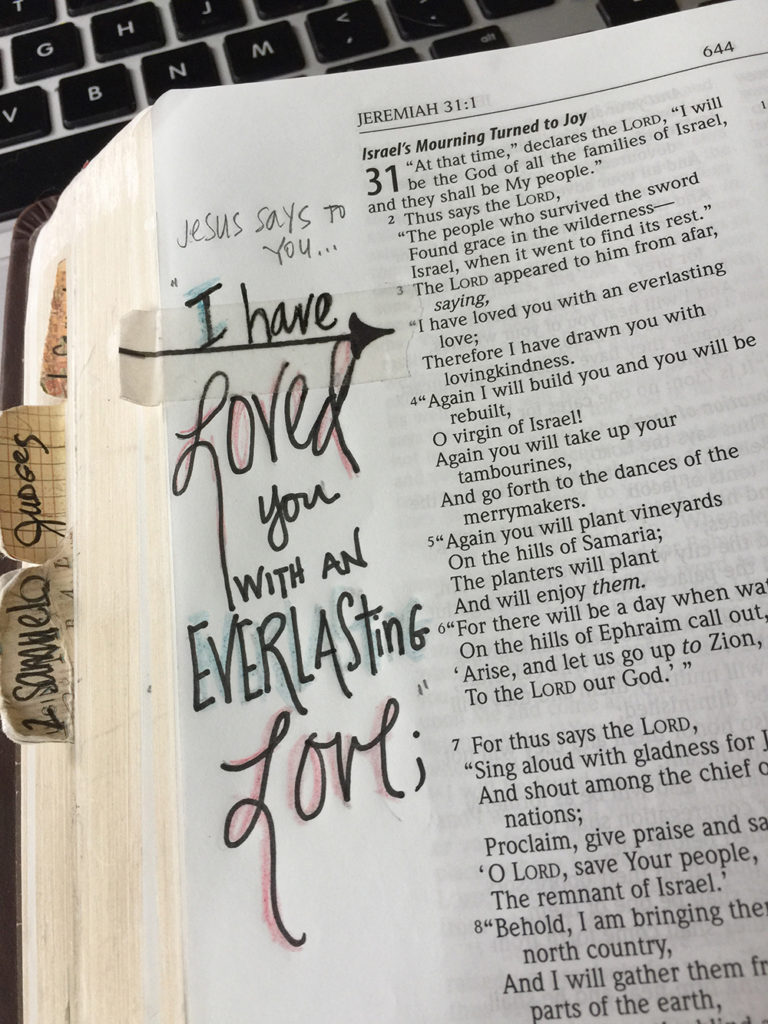 T
J
<
G
H
M
alt
N
B
V
644
JEREMIAH 31:1
Israel's Mourning Turned to Joy
31 "At that time," declares the LORD, "I will
be the God of all the families of Israel,
and they shall be My people."
2 Thus says the LORD,
"The people who survived the sword
Found grace in the wilderness—
Israel, when it went to find its rest."
3 The LORD appeared to him from afar,
saying,
"I have loved you with an everlasting
love;
Therefore I have drawn you with
lovingkindness.
4 "Again I will build you and you will be
rebuilt,
O virgin of Israel!
Again you will take up your
tambourines,
And go forth to the dances of the
merrymakers.
5 "Again you will plant vineyards
On the hills of Samaria;
The planters will plant
And will enjoy them.
6 "For there will be a day when
On the hills of Ephraim call out,
'Arise, and let us go up to Zion,
To the LORD our God.' "
7 For thus says the LORD,
"Sing aloud with gladness for
And shout among the chief
nations;
Proclaim, give praise and
'O LORD, save Your people,
The remnant of Israel.'
8 "Behold, I am bringing
north country,
And I will gather them
parts of the earth,
Jesus says to
you...
"I have
Loved
you
with an
Everlasting
Love;"
Judges
2 Samuel